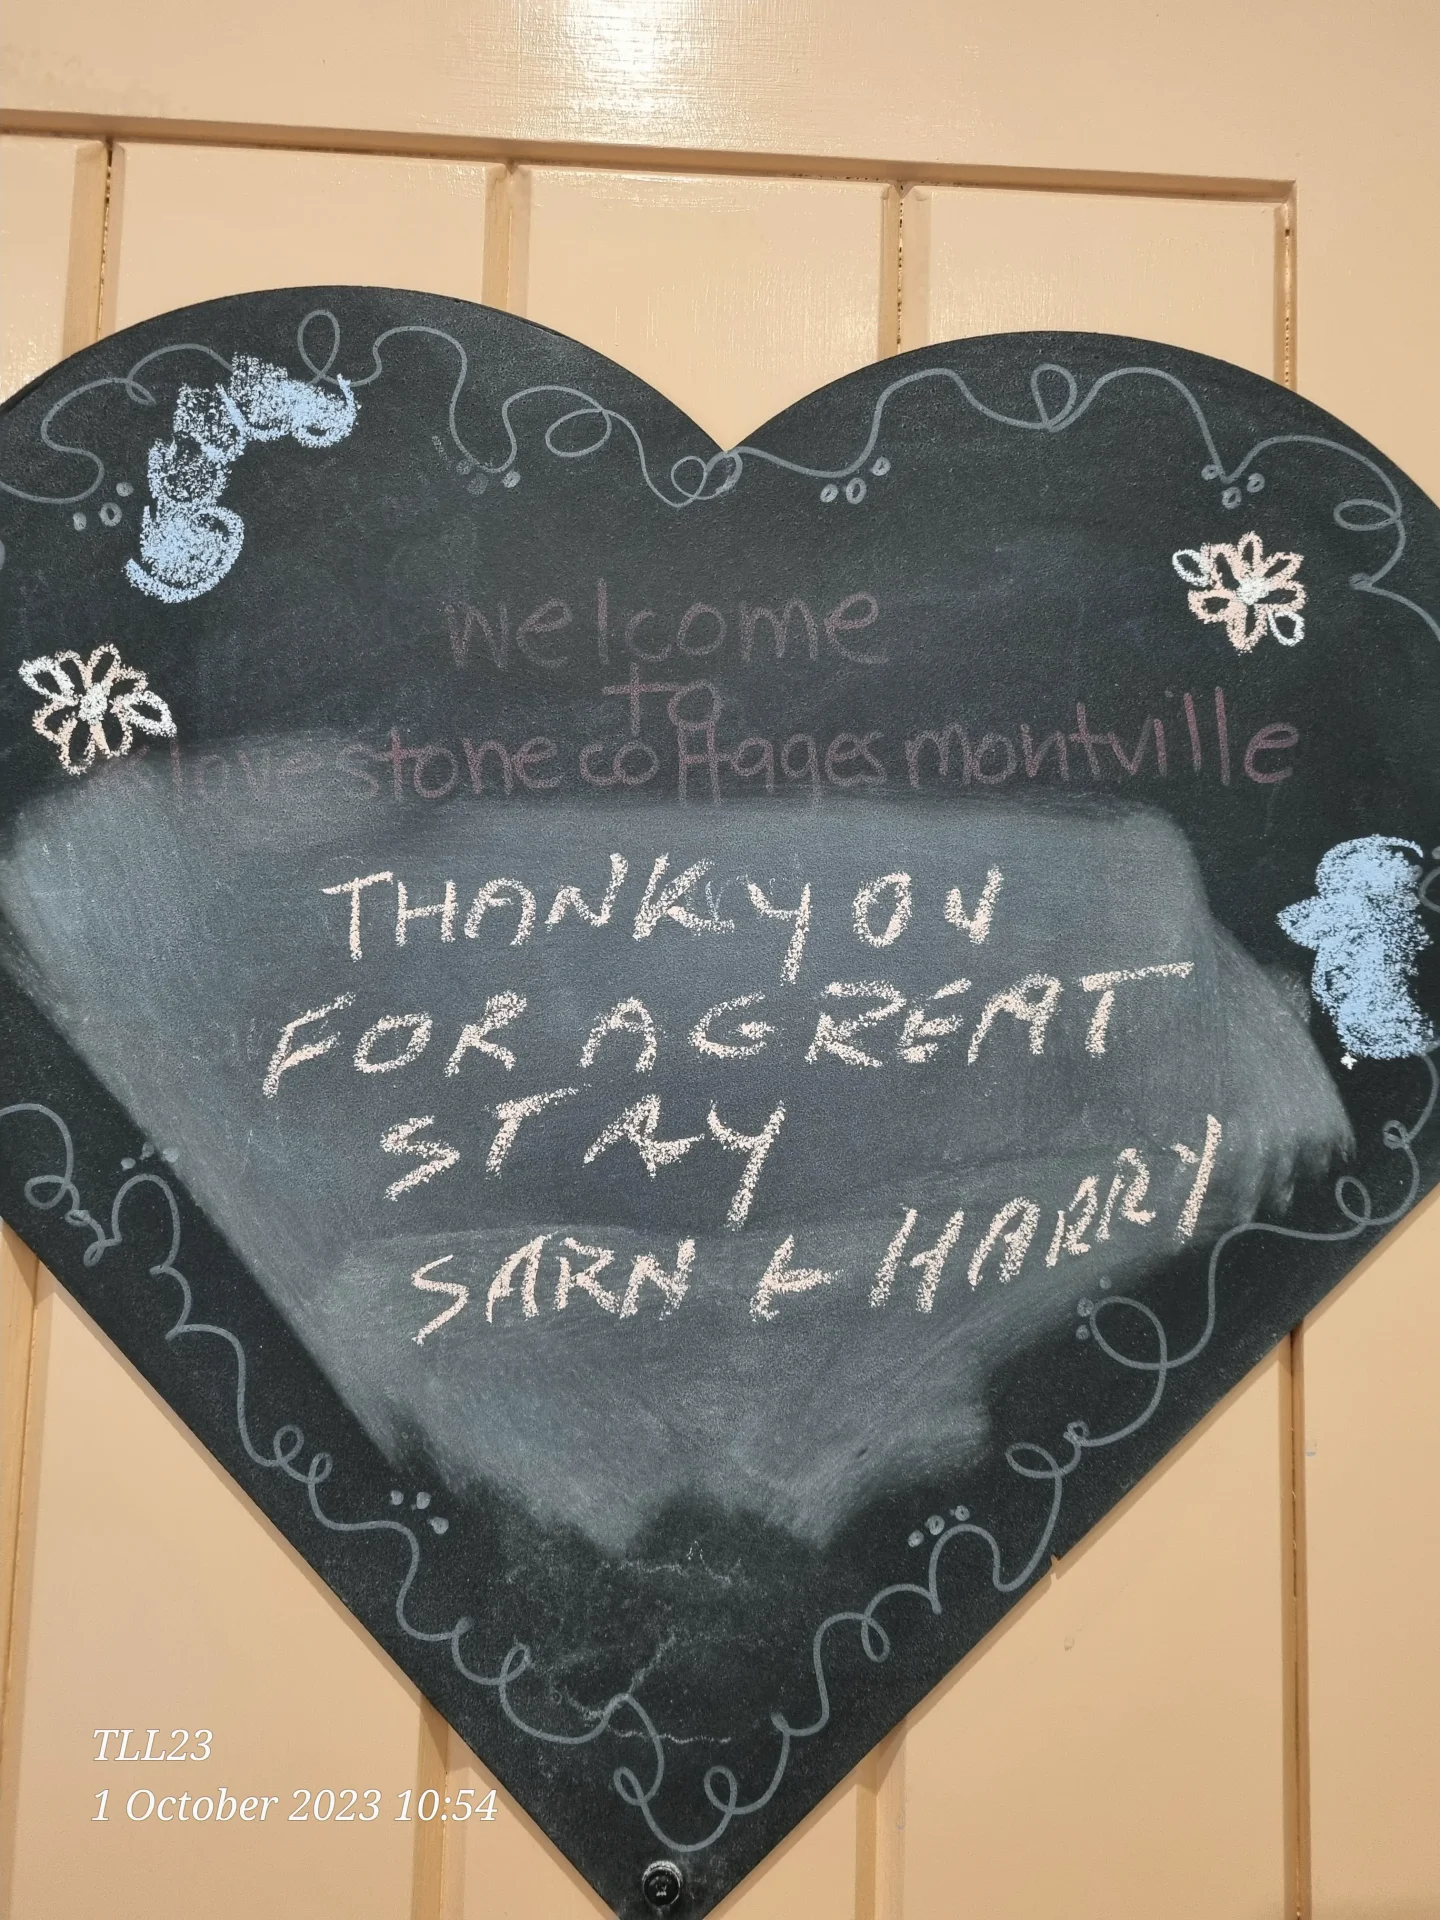 welcome
to
lovestone cottages montville
THANK YOU
FOR A GREAT
STAY
SARN & HARRY
TLL23
1 October 2023 10:54